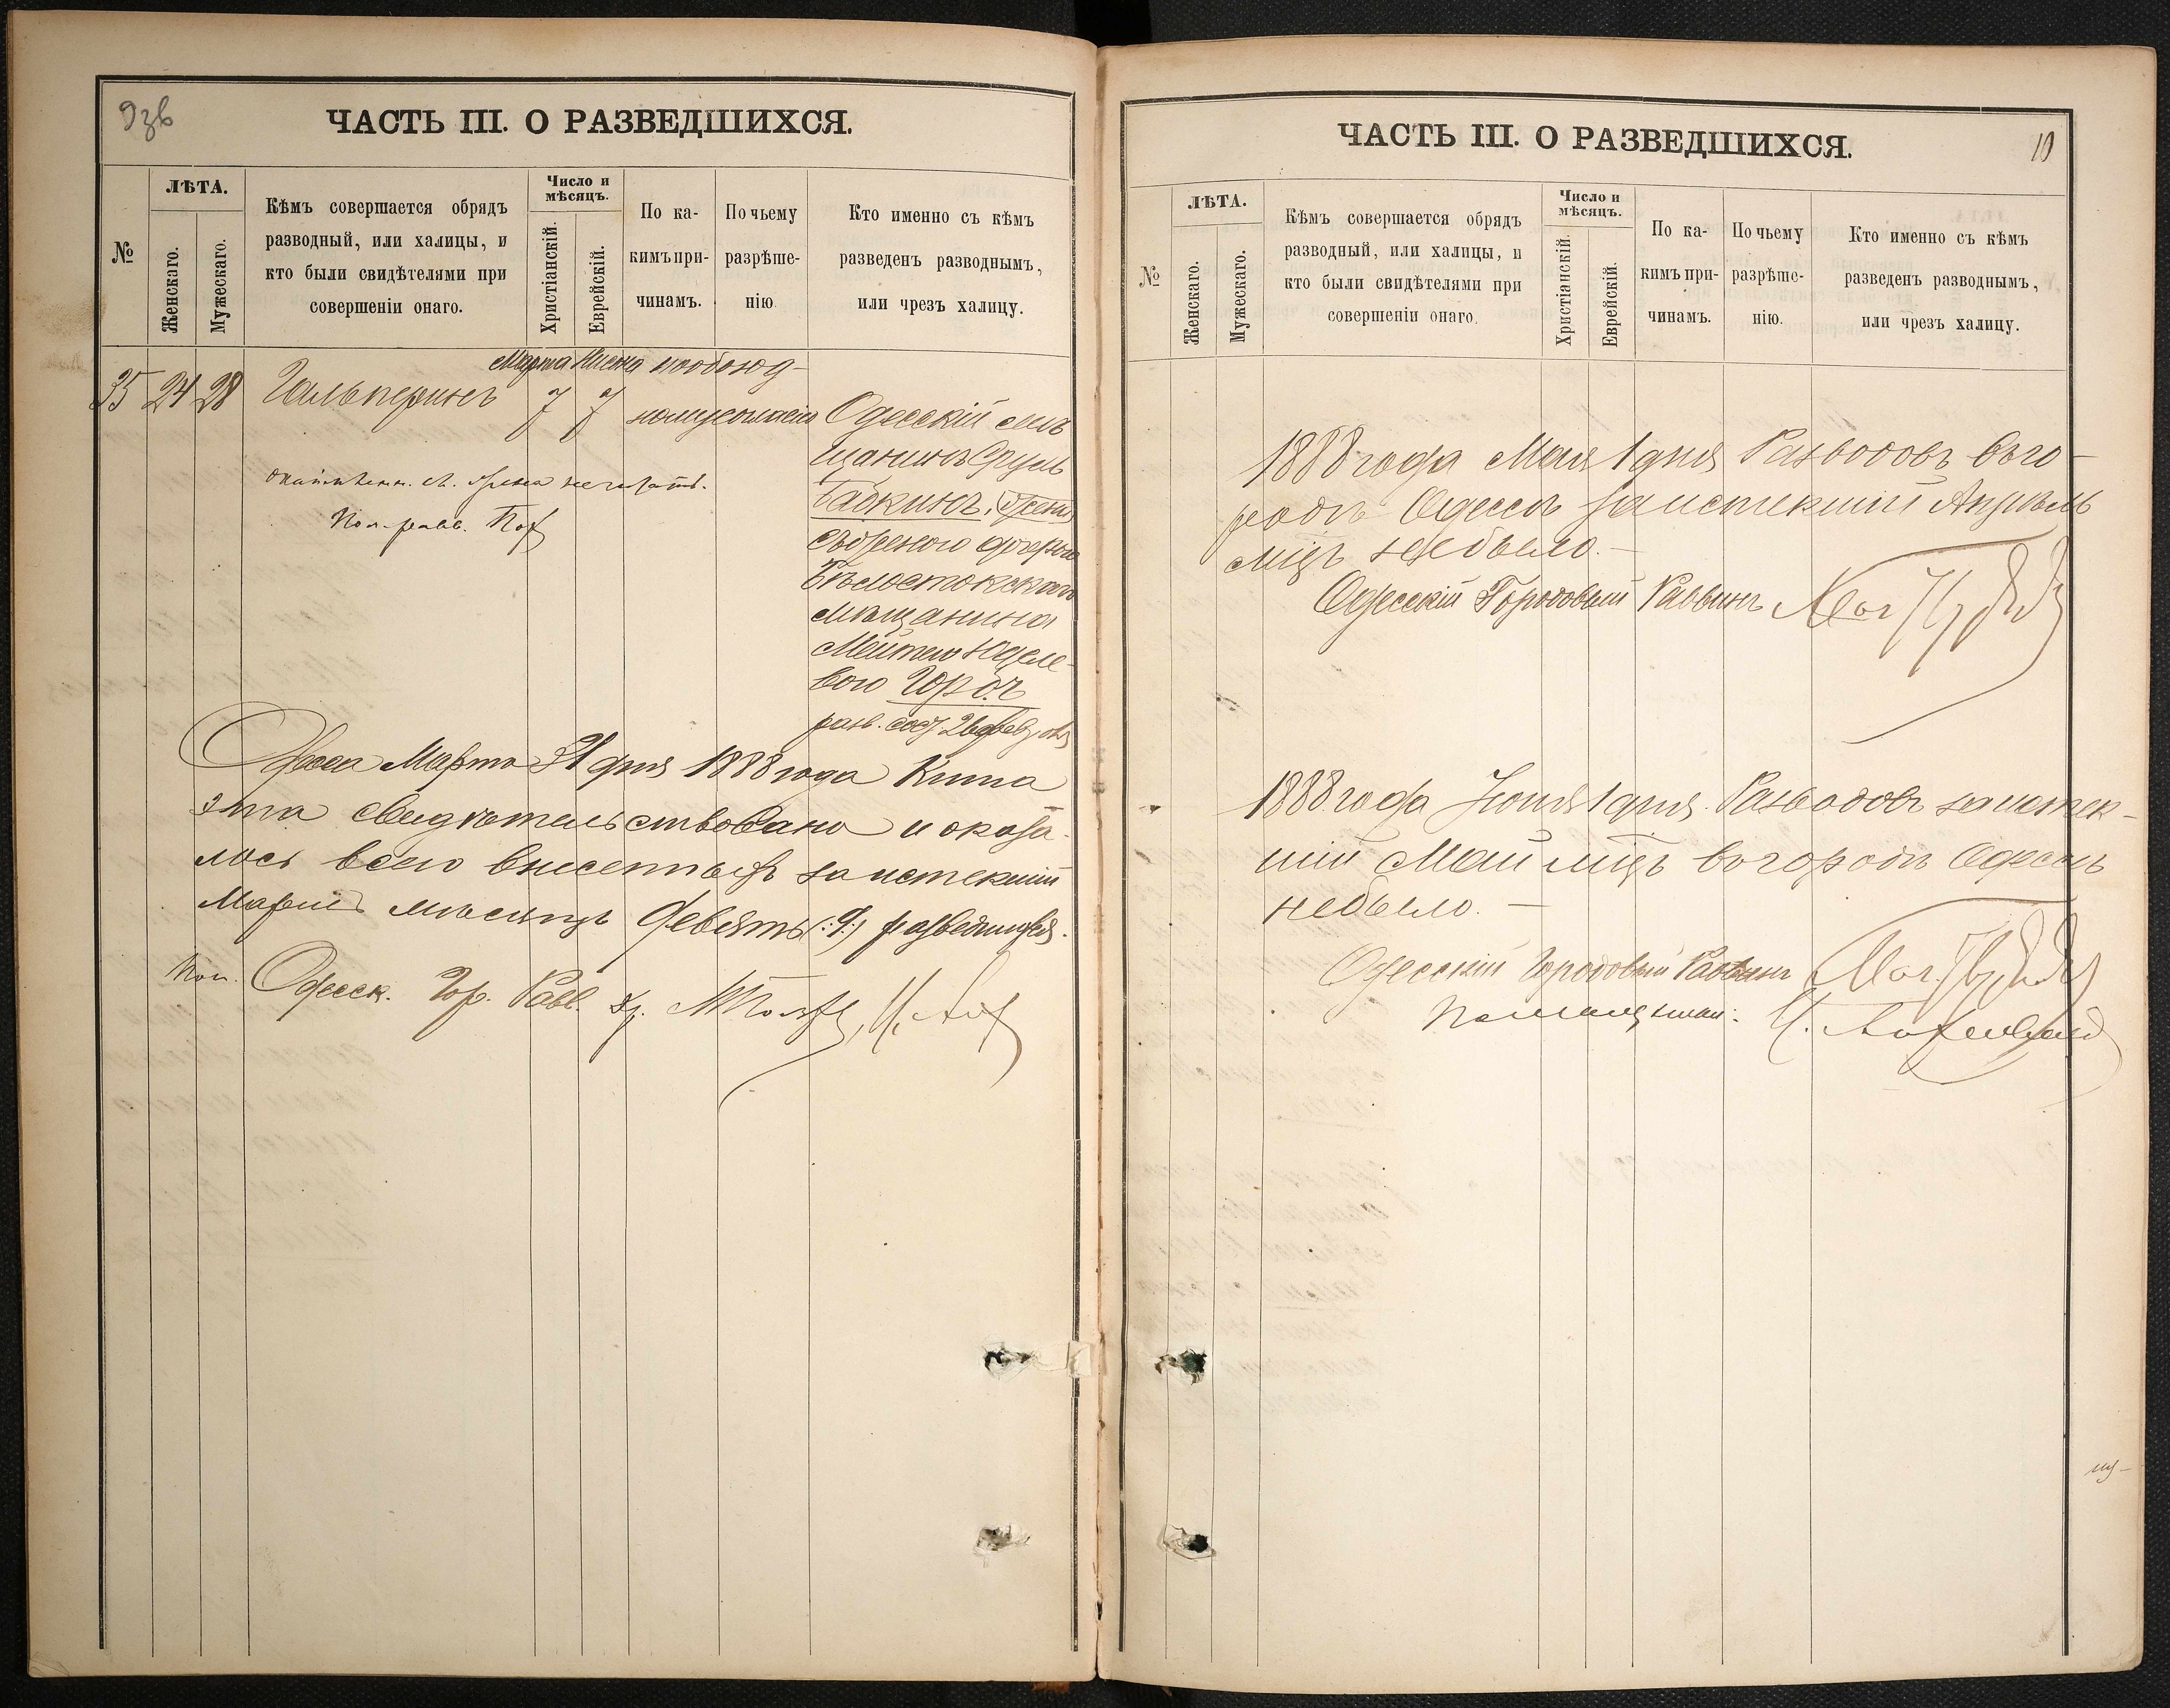 9 зв
ЧАСТЬ III. О РАЗВЕДШИХСЯ.
№
ЛѢТА.
Женскаго.
Мужескаго.
Кѣмъ совершается обрядъ
разводный, или халицы, и
кто были свидѣтелями при
совершеніи онаго.
Число и
мѣсяцъ.
Христіанскій.
Еврейскій.
По ка-
кимъ при-
чинамъ.
По чьему
разрѣше-
нію.
Кто именно съ кѣмъ
разведенъ разводнымъ,
или чрезъ халицу.
Марта Нисана пообоюд-
35 24 28 Гальперинъ 7 7 ному
Одесскій мѣ
щанинъ Сруль
дочерью
Бѣлостокскаго
мѣщанина
вого
разв.
Одесса Марта 31 дня 1888 года Книга
эта свидѣтельствована и оказа-
лось всего внесенныхъ за истекшій
мѣсяцъ девять (:9:) разведшихся.
Пом. Одесск. Гор. Равв.
ЧАСТЬ III. О РАЗВЕДШИХСЯ.
10
№
ЛѢТА.
Женскаго.
Мужескаго.
Кѣмъ совершается обрядъ
разводный, или халицы, и
кто были свидѣтелями при
совершеніи онаго.
Число и
мѣсяцъ.
Христіанскій.
Еврейскій.
По ка-
кимъ при-
чинамъ.
По чьему
разрѣше-
нію.
Кто именно съ кѣмъ
разведенъ разводнымъ,
или чрезъ халицу.
1888 года Мая 1 дня Разводовъ въ го-
родѣ Одессѣ за истекшій Апрѣль
мѣцъ небыло. —
Одесскій Городовый Раввинъ
1888 года Іюня 1 дня. Разводовъ за истек-
шій Май мѣцъ въ городѣ Одессѣ
небыло. —
Одесскій Городовый Раввинъ